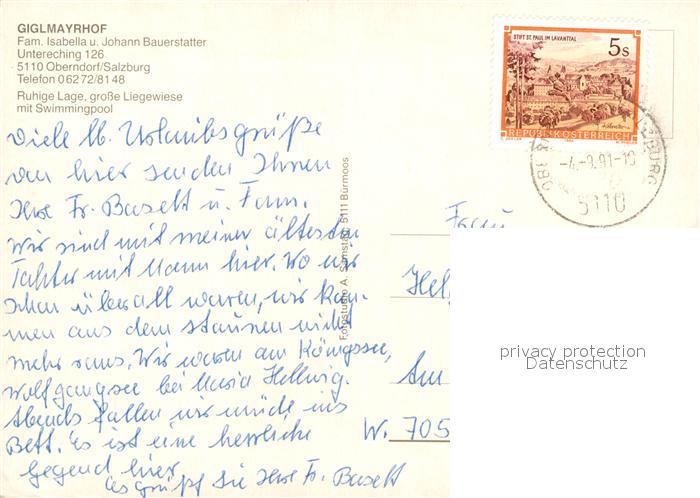 GIGLMAYRHOF
Fam. Isabella u. Johann Bauerstatter
Untereching 126
5110 Oberndorf/Salzburg
Telefon 06272/8148
Ruhige Lage, große Liegewiese
mit Swimmingpool
Viele lb. Urlaubsgrüße
von hier senden Ihnen
Ihre Fr. Basett u. Fam.
Wir sind mit meiner ältesten
Tochter mit Mann hier. Wo wir
schon überall waren, wir kom-
men aus dem staunen nicht
mehr raus. Wir waren am Königssee,
Wolfgangsee bei Maria Hellwig.
Abends fallen wir müde ins
Bett. Es ist eine herrliche
Gegend hier.
Es grüßt Sie Ihre Fr. Basett
Fotostudio A. Samstag, 5111 Bürmoos
STIFT ST. PAUL IM LAVANTTAL
5 S
REPUBLIK ÖSTERREICH
-4.-9.91-10
5110
Frau
Hel
Am
W. 705
privacy protection
Datenschutz